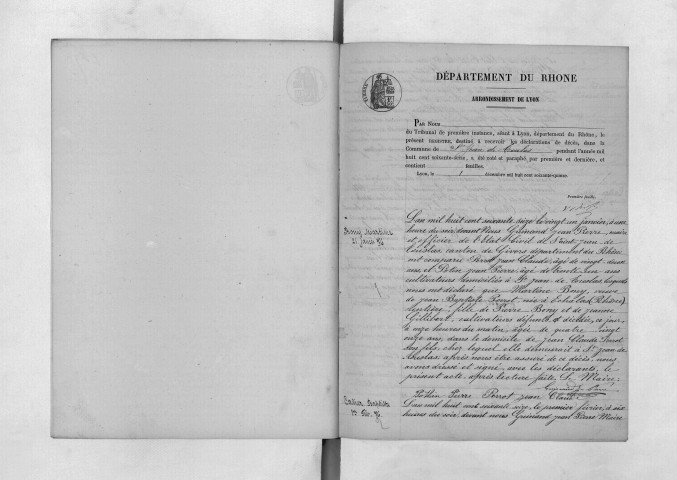 DÉPARTEMENT DU RHONE
ARRONDISSEMENT DE LYON
PAR NOUS
du Tribunal de première instance, séant à Lyon, département du Rhône, le
présent REGISTRE, destiné à recevoir les déclarations de décès, dans la
Commune de St Jean de Touslas pendant l'année mil
huit cent soixante-seize, a été coté et paraphé par première et dernière, et
contient feuilles.
Lyon, le décembre mil huit cent soixante-quinze.
Première feuille.
Bony Martine
21 Janvier 76
L'an mil huit cent soixante seize le vingt un janvier, à une
heure du soir, devant Nous Grimand Jean Pierre maire
et officier de l'état Civil de Saint Jean de
Touslas, canton de Givors département du Rhône
ont comparu Perrot Jean Claude, âgé de vingt deux
ans et Pothin Jean Pierre âgé de trente un ans
cultivateurs domiciliés à St Jean de Touslas, lesquels
nous ont déclaré que Martine Bony, veuve
de Jean Baptiste Perrot née à Echalas (Rhône)
fille de Pierre Bony et de
cultivateurs défunts, est décédée ce jour
à onze heures du matin, âgée de quatre vingt
onze ans, dans le domicile de Jean Claude Perrot
son fils, chez lequel elle demeurait à St Jean de
Touslas; après nous être assuré de ce décès, nous
avons dressé et signé, avec les déclarants, le
présent acte, après lecture faite. Le Maire,
Pothin Pierre Perrot Jean Claude
1er Fév. 76
L'an mil huit cent soixante seize, le premier février, à six
heures du soir, devant nous Grimand Jean Pierre Maire